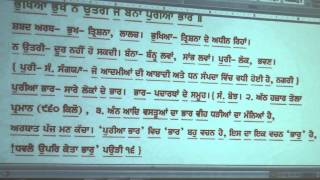 ਭੁਖਿਆ ਭੁਖ ਨ ਉਤਰੀ ਜੇ ਬੰਨਾ ਪੁਰੀਆ ਭਾਰ ॥
ਸ਼ਬਦ ਅਰਥ- ਭੁਖ- ਤ੍ਰਿਸ਼ਨਾ, ਲਾਲਚ। ਭੁਖਿਆ- ਤ੍ਰਿਸ਼ਨਾ ਦੇ ਅਧੀਨ ਰਿਹਾਂ।
ਨ ਉਤਰੀ- ਦੂਰ ਨਹੀਂ ਹੋ ਸਕਦੀ। ਬੰਨਾ- ਬੰਨ੍ਹ ਲਵਾਂ, ਸਾਂਭ ਲਵਾਂ। ਪੁਰੀ- ਲੋਕ, ਭਵਣ।
{ ਪੁਰੀ- ਸੰ. ਸੰਗਯਾ- ਜੋ ਆਦਮੀਆਂ ਦੀ ਆਬਾਦੀ ਅਤੇ ਧਨ ਸੰਪਦਾ ਵਿੱਚ ਵਧੀ ਹੋਈ ਹੈ, ਨਗਰੀ }
ਪੁਰੀਆ ਭਾਰ- ਸਾਰੇ ਲੋਕਾਂ ਦੇ ਭਾਰ। ਭਾਰ- ਪਦਾਰਥਾਂ ਦੇ ਸਮੂਹ। { ਸੰ. ਬੋਝ। ੨. ਅੱਠ ਹਜ਼ਾਰ ਤੋਲਾ
ਪ੍ਰਮਾਨ (੯੬੦ ਕਿਲੋ) , ੩. ਅੰਨ ਆਦਿ ਵਸਤੂਆਂ ਦਾ ਭਾਰ ਵੀਹ ਧੜੀਆਂ ਦਾ ਮੰਨਿਆ ਹੈ,
ਅਰਥਾਤ ਪੰਜ ਮਣ ਕੱਚਾ। 'ਪੁਰੀਆ ਭਾਰ' ਵਿਚ 'ਭਾਰ' ਬਹੁ ਵਚਨ ਹੈ, ਇਸ ਦਾ ਇਕ ਵਚਨ 'ਭਾਰੁ' ਹੈ,
[ਧਵਲੈ ਉਪਰਿ ਕੇਤਾ ਭਾਰੁ' ਪਉੜੀ ੧੬ }